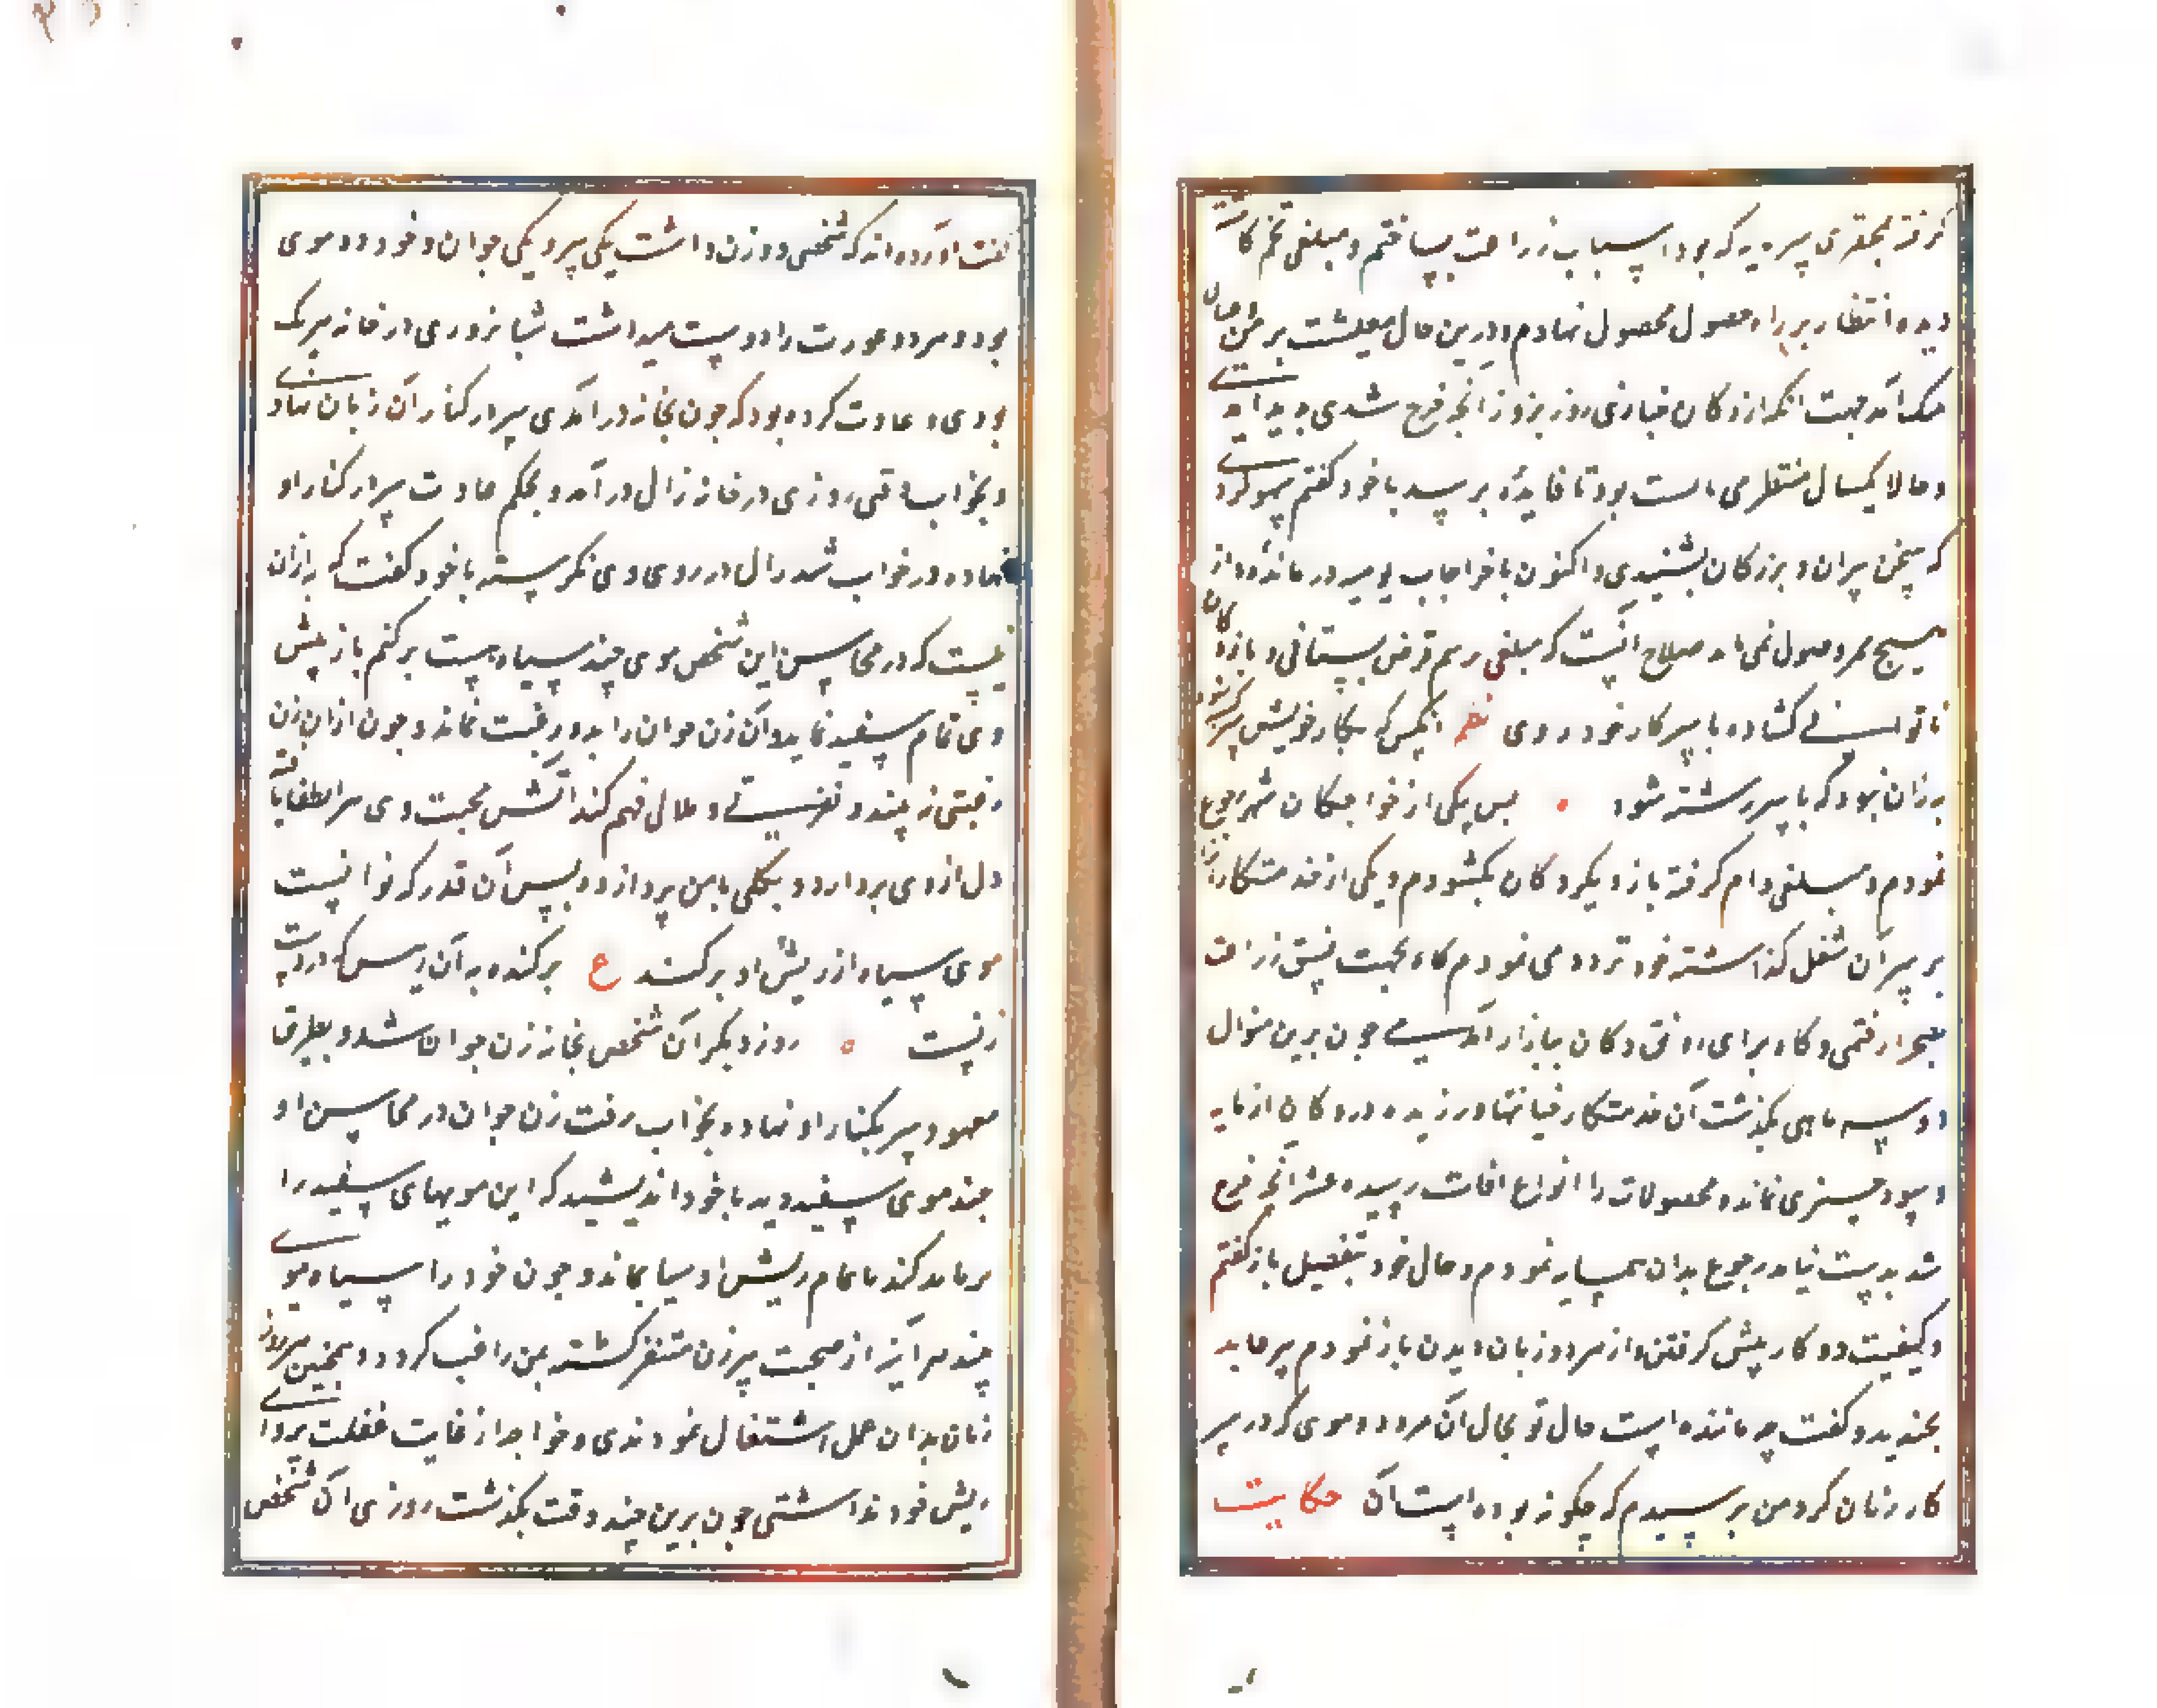 گرفته محقری سرمایه که بود اسباب زراعت بساختم و مبلغی تخم کاشته
دیده انتظار بر راه حصول محصول نهادم و درین حال معیشت بر من و عیال
تنک آمد جهت آنکه از دکان خبازی روز بروز آنچه خرج شدی پیدا آمدی
و حالا یکسال منتظر می بایست بود تا فایده برسد با خود گفتم سهو کردی
که سخن پیران و بزرکان نشنیدی و اکنون با خراجات یومیه درمانده و از
هیچ ممر وصول نمی آمد صلاح آنست که مبلغی برسم قرض بستانی و باز دکان
نانوائی گشاده با سر کار خود روی نظم آنکس که بکار خویش سر گشته شود
به زان نبود که با سر رشته شود پس بیکی از خواجکان شهر رجوع
نمودم و مبلغی وام گرفته باز دیگر دکان بگشودم و یکی از خدمتکاران را
بر سر آن شغل گذاشته خود تردد می نمودم گاه بجهت نسق زراعت
بصحرا رفتمی و گاه برای رونق دکان ببازار آمدمی چون برین منوال
دو سه ماهی بگذشت آن خدمتکار خیانتها ورزیده در دکان از مایه
و سود چیزی نماند و محصولات را انواع آفات رسیده عشر آنچه خرج
شد بدست نیامد رجوع بدان همسایه نمودم و حال خود بتفصیل باز گفتم
و کیفیت دو کار پیش گرفتن و از هر دو زیان دیدن باز نمودم پیر عابد
بخندید و گفت چه مانند است حال تو بحال آن مرد دو موی که در سر
کار زنان کرد من پرسیدم که چگونه بوده است آن حکایت
گفت آورده اند که شخصی دو زن داشت یکی پیر و یکی جوان و خود دو موی
بود و هر دو عورت را دوست میداشت شبانروزی در خانه هر یک
بودی و عادت کرده بود که چون بخانه در آمدی سر در کنار آن زنان نهادی
و بخواب رفتی روزی در خانه زال در آمد و بحکم عادت سر در کنار او
نهاده در خواب شد زال در روی وی نگریسته با خود گفت که به ازان
نیست که در محاسن این شخص موی چند سیاه هست بر کنم تا ریش
وی تمام سفید نماید و آن زن جوان را بدو رغبت نماند و چون ازان زن
رغبتی نه بیند و نفرتی و ملالی فهم کند آتش محبت وی سر انطفا یافته
دل از وی بردارد و بکلی با من پردازد و پس آن قدر که توانست
موی سیاه از ریش او بر کند ع بر کنده به آن ریش که در دست
زنیست روز دیگر آن شخص بخانه زن جوان شد و بطریق
معهود سر بکنار او نهاده بخواب رفت زن جوان در محاسن او
چند موی سفید دید با خود اندیشید که این مویهای سفید را
بر باید کند تا تمام ریش او سیاه نماند و چون خود را سیاه موی
بیند هر آینه از صحبت پیر زن متنفر گشته بمن راغب گردد و همچنین هر روز
زنان بدان عمل اشتغال نمودندی و خواجه از غایت غفلت پروای
ریش خود نداشتی چون برین چند وقت بگذشت روزی آن شخص